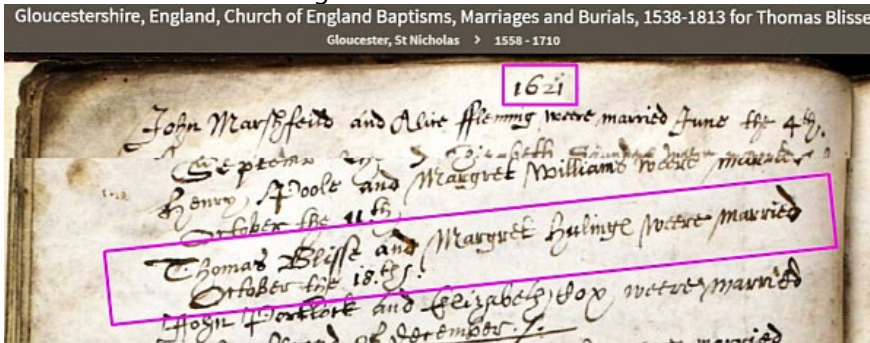 Gloucestershire, England, Church of England Baptisms, Marriages and Burials, 1538-1813 for Thomas Blisse
Gloucester, St Nicholas > 1558 - 1710
1621
John Marshfeild and Alice ffleming weere married June the 4th.
Henry Poole and Margret Williams weere married
October the 11th
Thomas Blisse and Margret Hulinge weere married
October the 18th.
John and Elizabeth weere married
of december
married